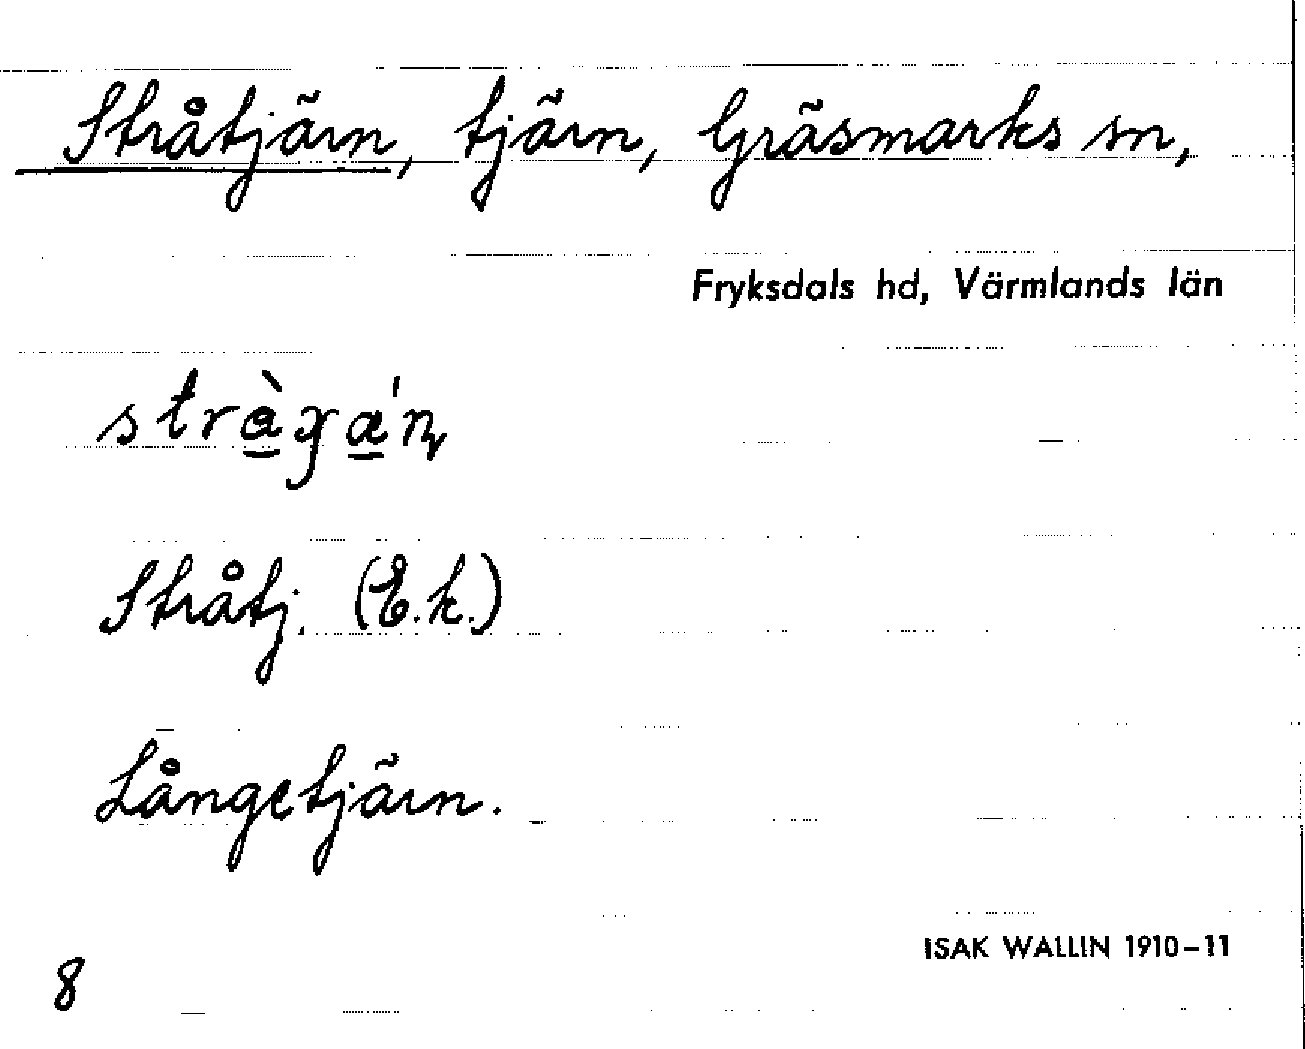 Stråtjärn, tjärn, Gräsmarks sn,
Fryksdals hd, Värmlands län
Stråtj. (E.k.)
Långetjärn.
ISAK WALLIN 1910–11
8